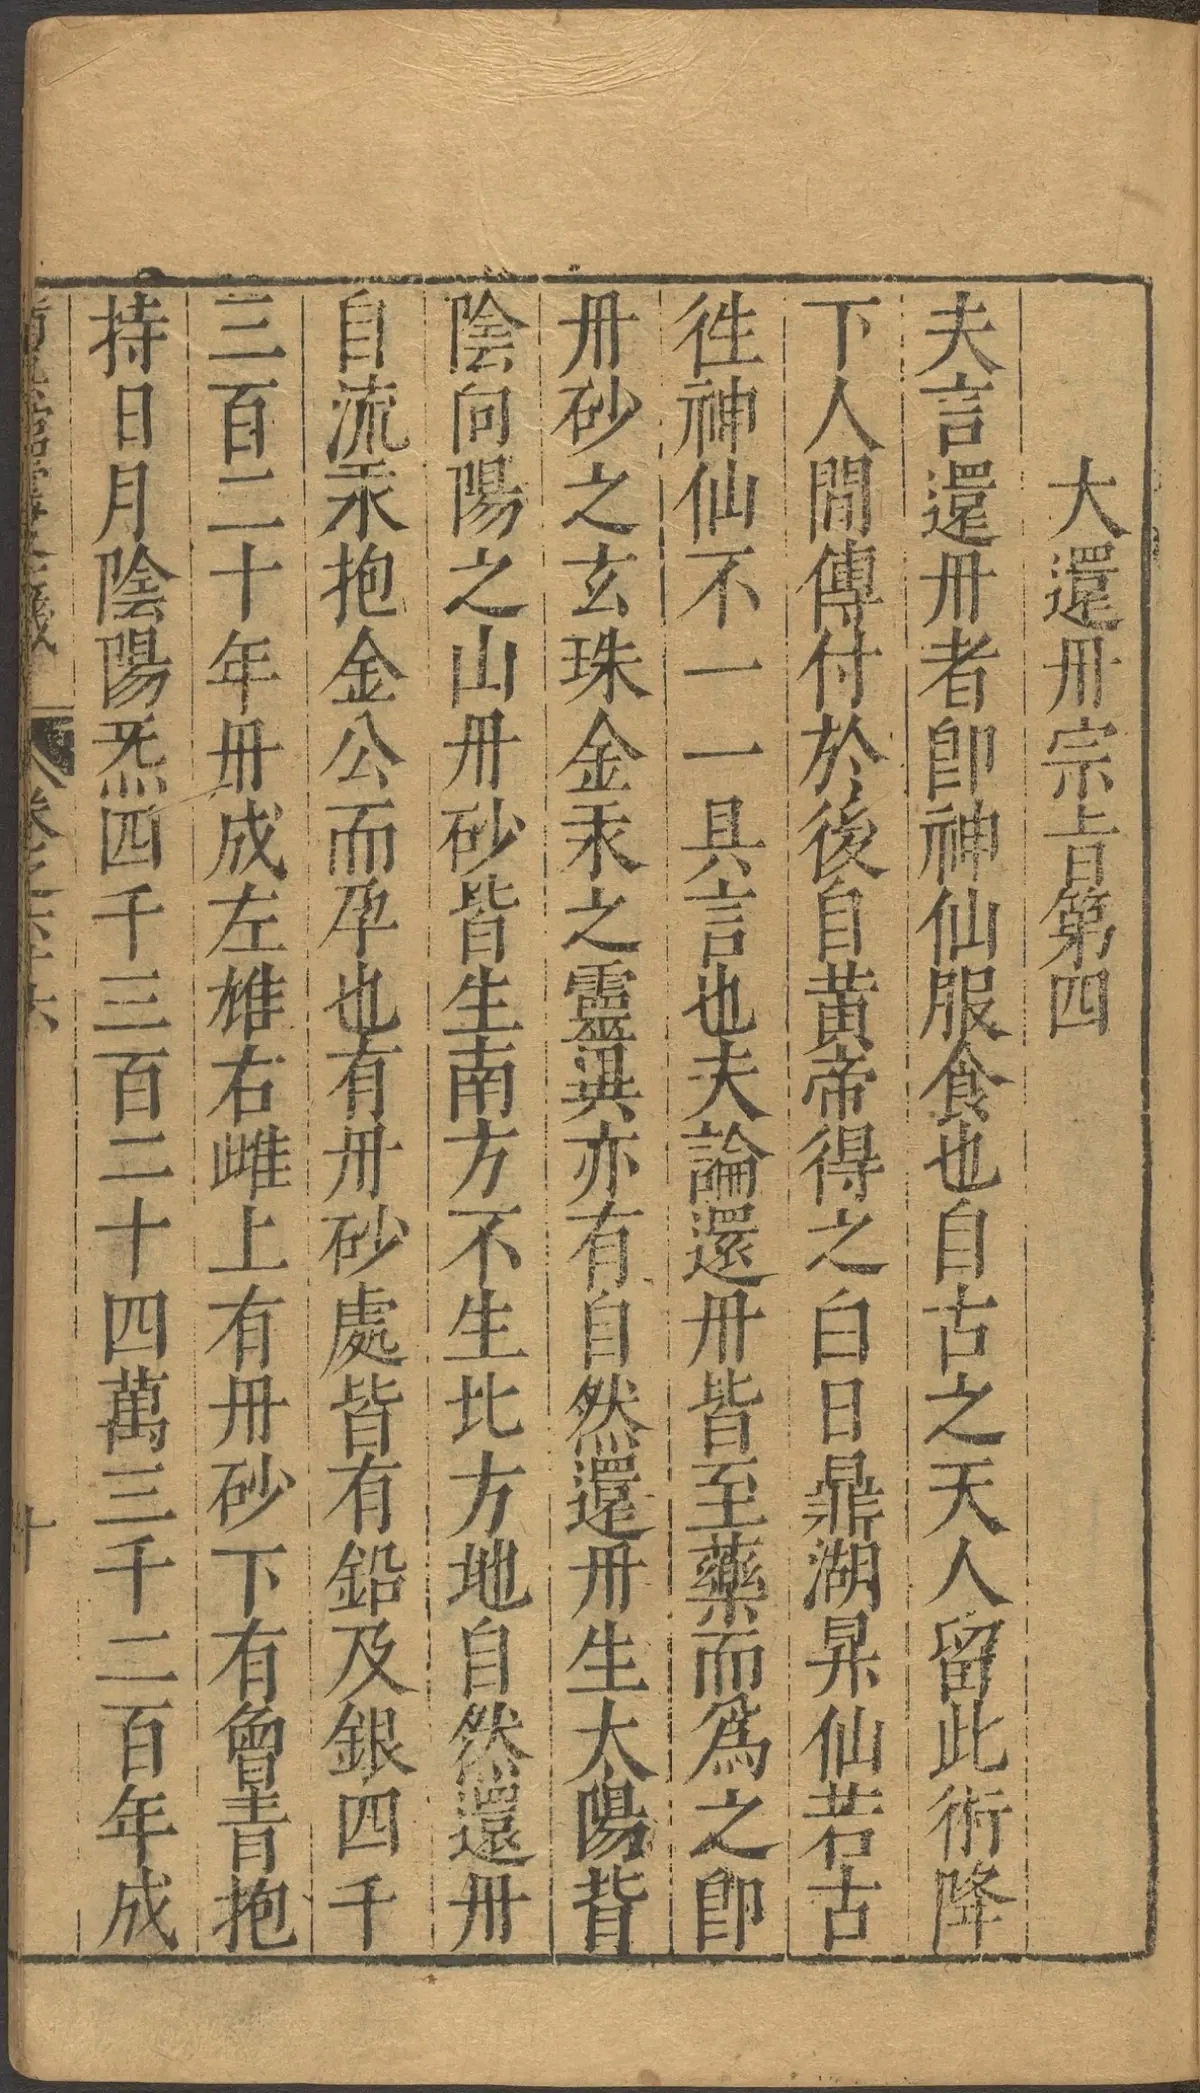 大還丹宗旨第四
夫言還丹者即神仙服食也自古之天人留此術降
下人間傳付於後自黃帝得之白日鼎湖昇仙若古
徃神仙不一一具言也夫論還丹皆至藥而爲之即
丹砂之玄珠金汞之靈異亦有自然還丹生太陽背
陰向陽之山丹砂皆生南方不生北方地自然還丹
自流汞抱金公而孕也有丹砂處皆有鉛及銀四千
三百二十年丹成左雄右雌上有丹砂下有曾青抱
持日月陰陽炁四千三百二十四萬三千二百年成